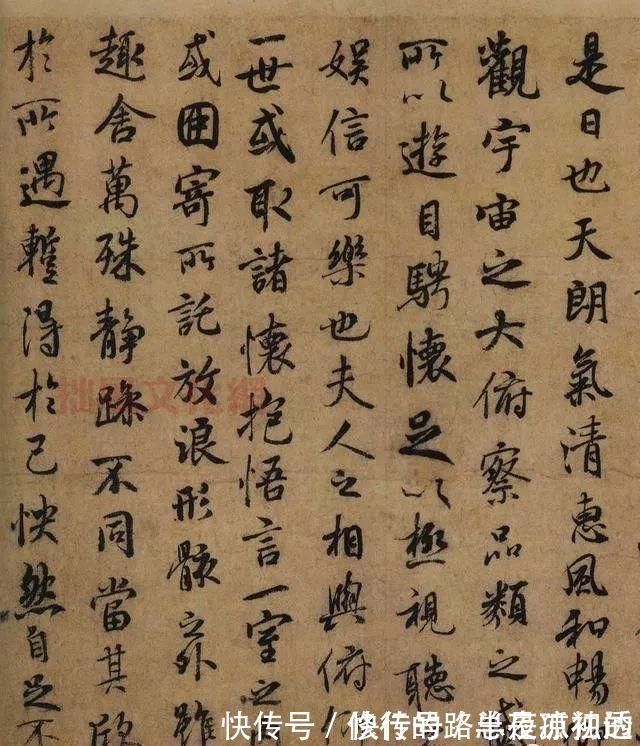 是日也天朗氣清惠風和暢
觀宇宙之大俯察品類之盛
所以遊目騁懷足以極視聽
娱信可樂也夫人之相與俯仰
一世或取諸懷抱悟言一室之
或因寄所託放浪形骸之外雖
趣舍萬殊静躁不同當其欣
於所遇蹔得於己怏然自足不
快传号/